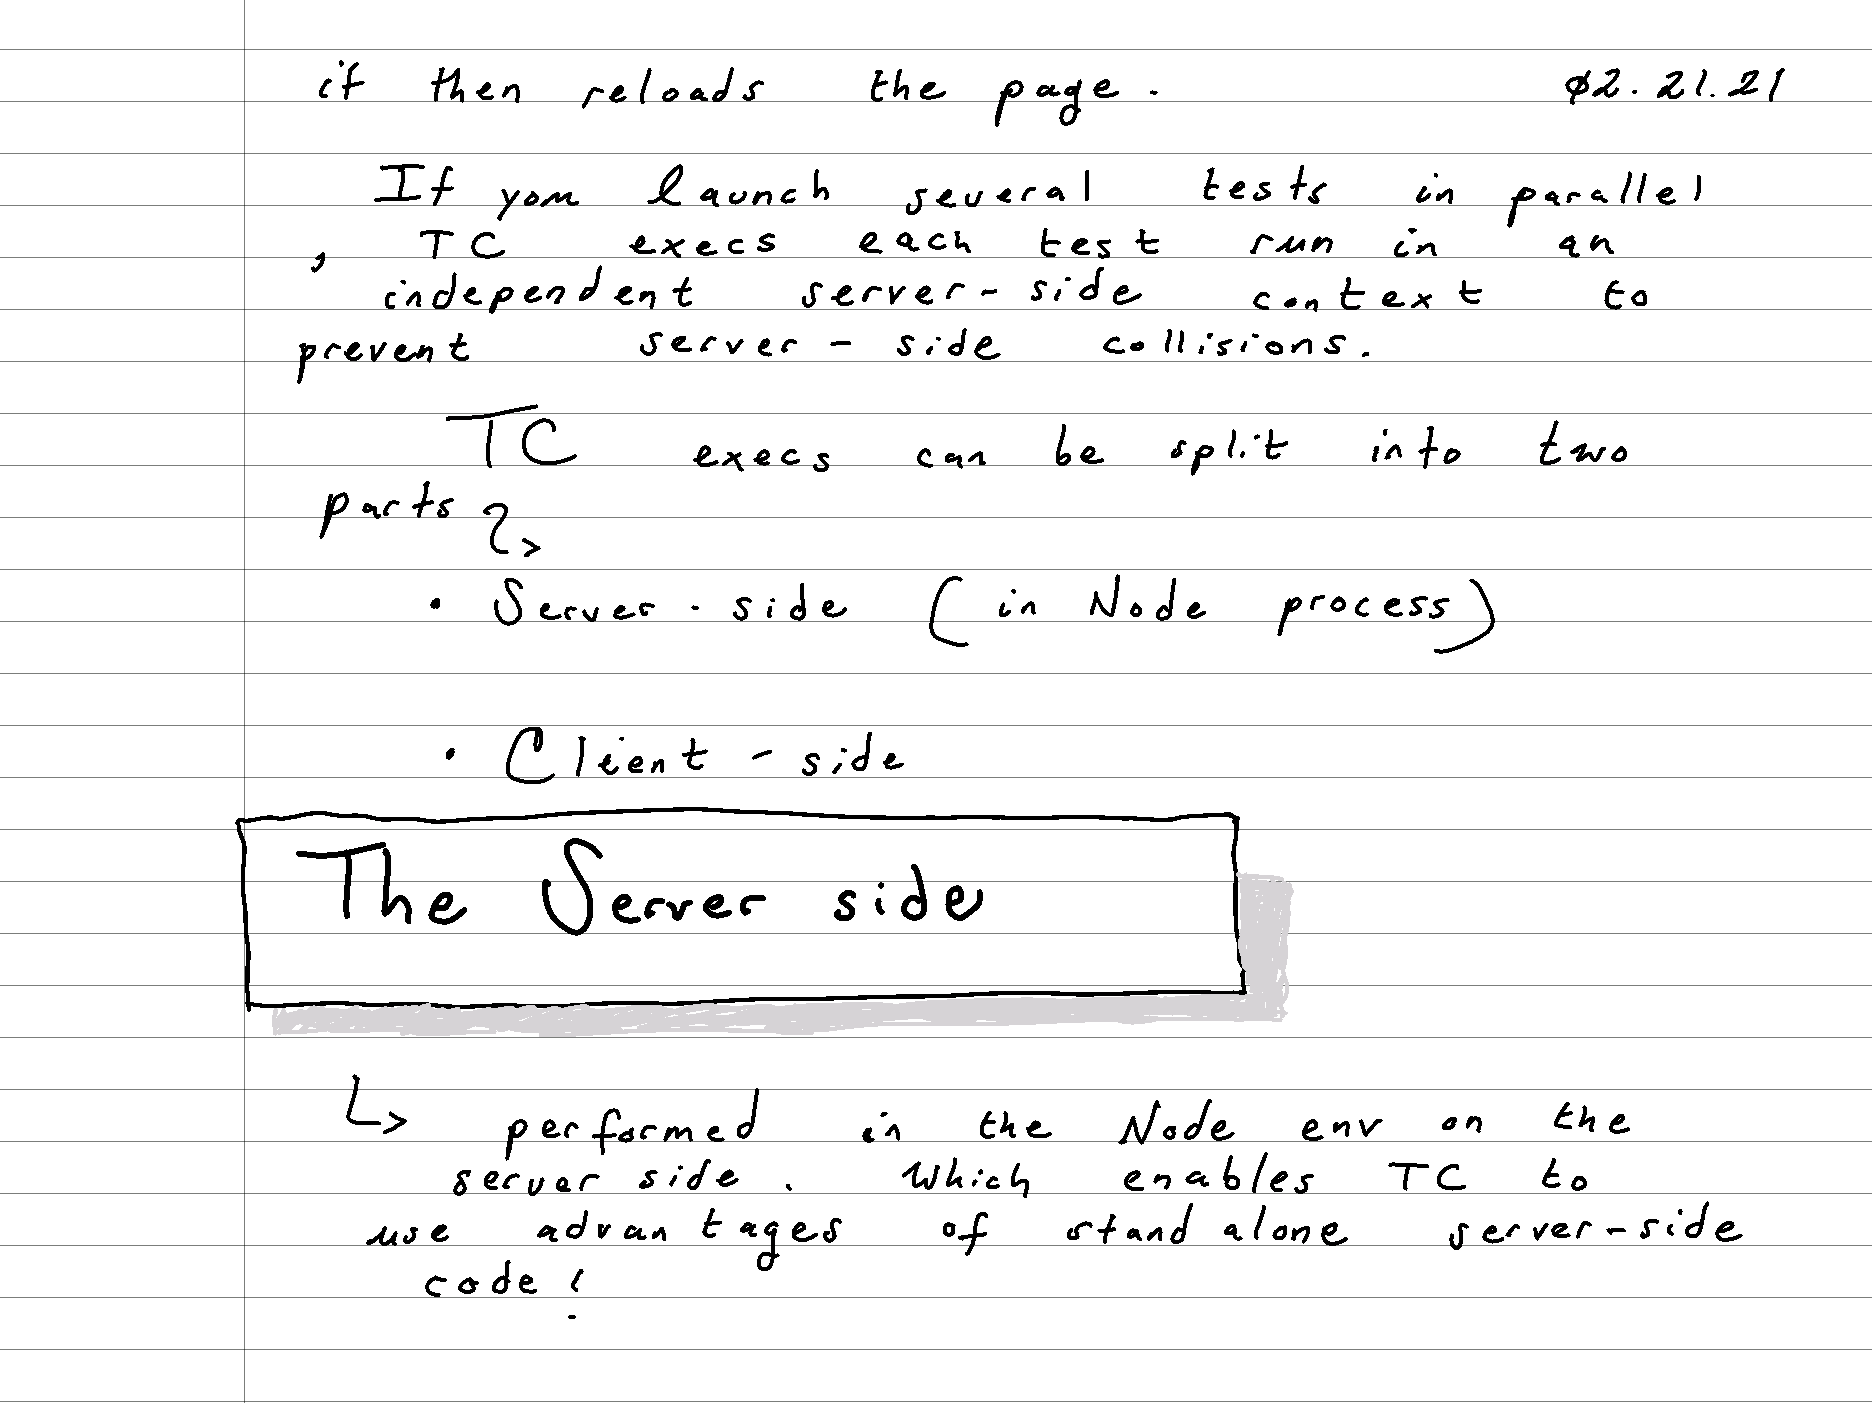 it then reloads the page. 02.21.21
If you launch several tests in parallel
, TC execs each test run in an
independent server-side context to
prevent server-side collisions.
TC execs can be split into two
parts
• Server-side (in Node process)
• Client-side
The Server side
↳ performed in the Node env on the
server side. Which enables TC to
use advantages of standalone server-side
code!